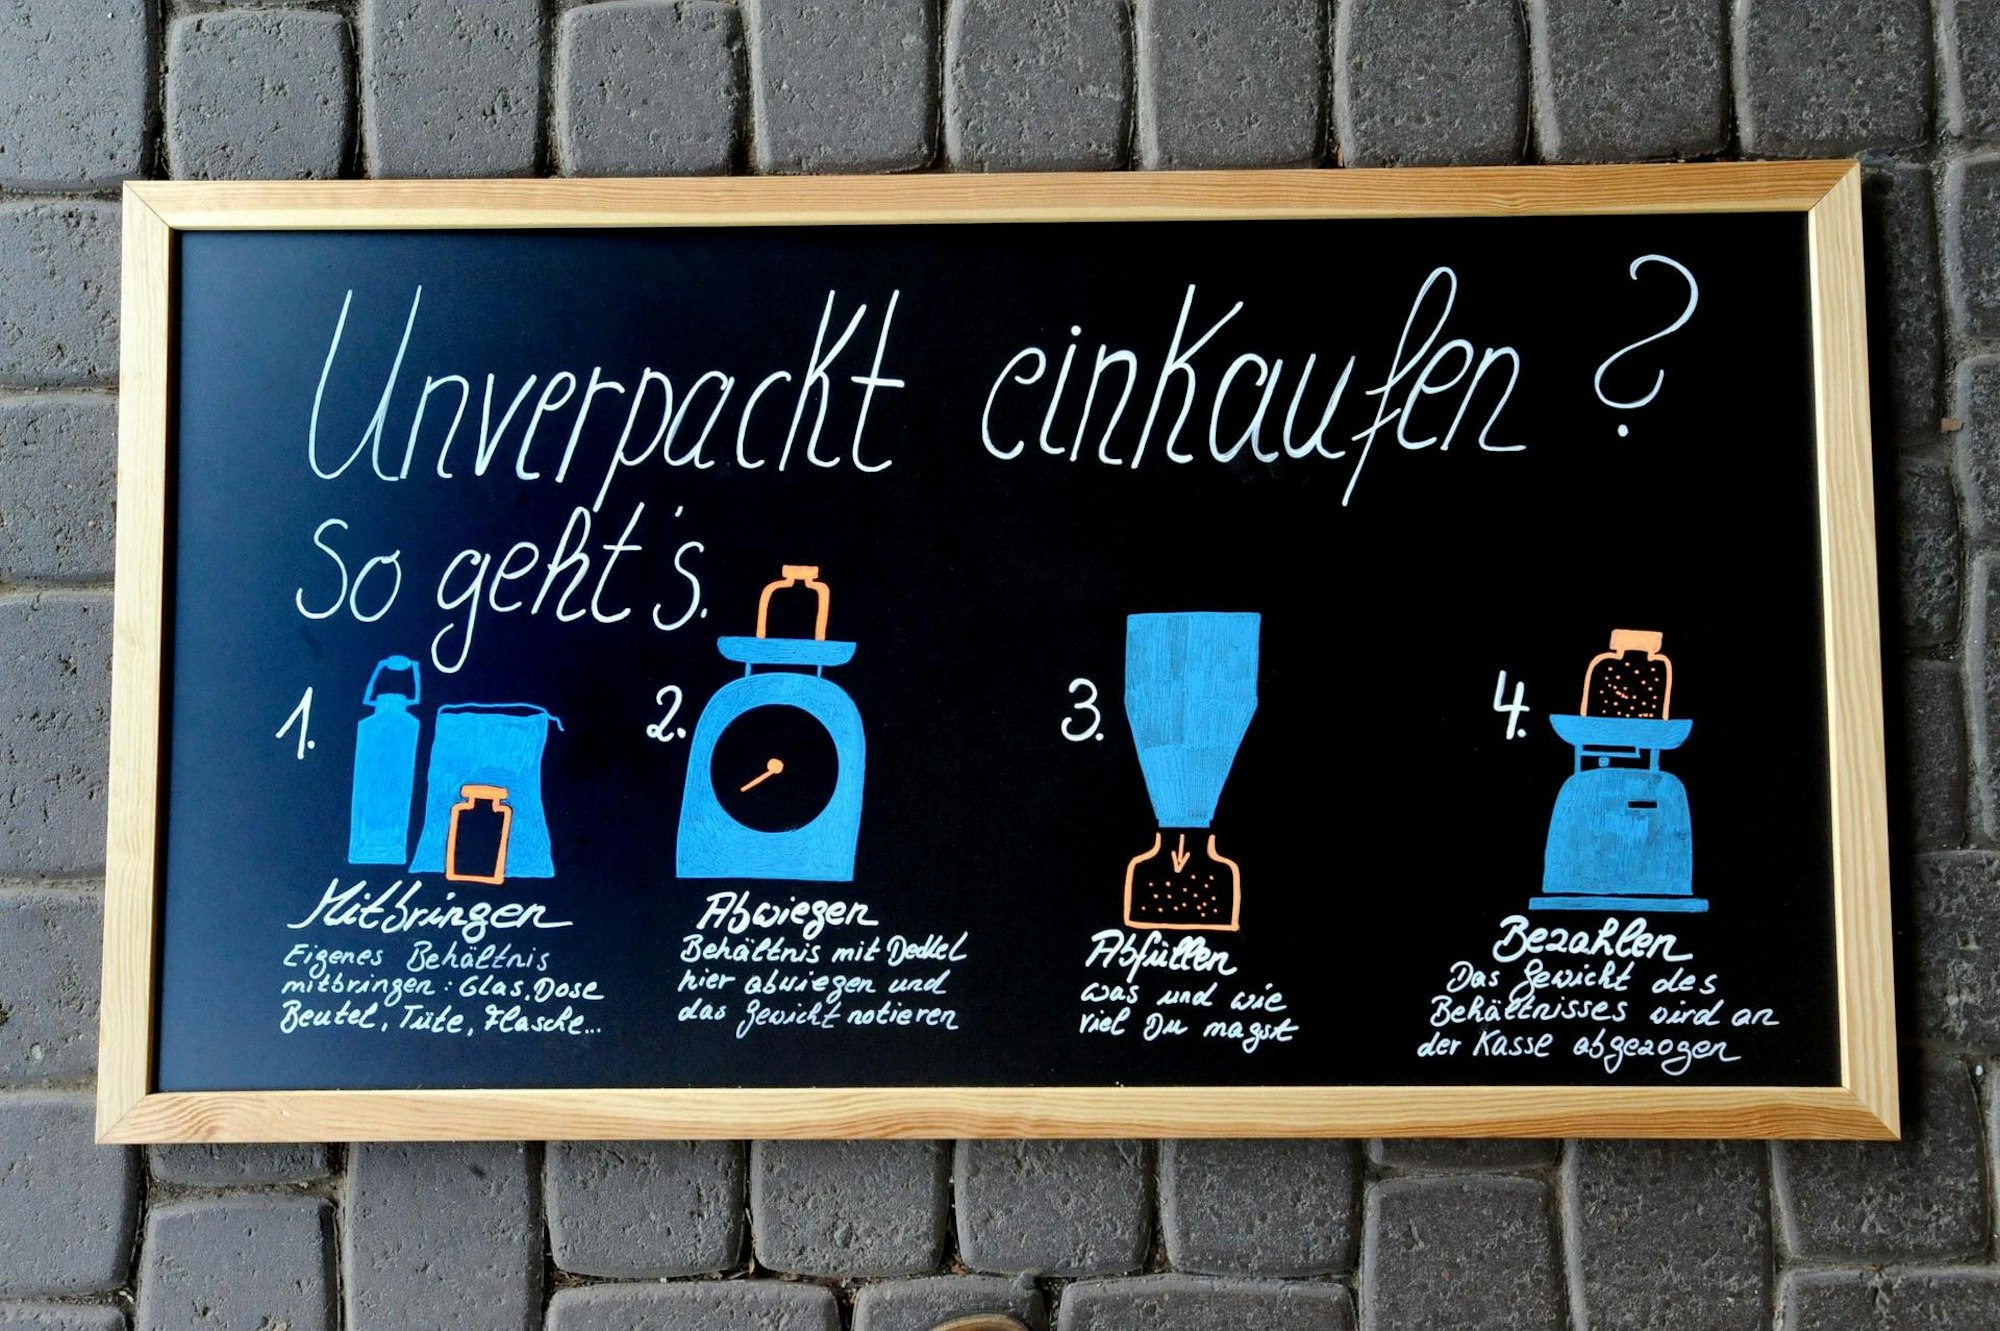 Unverpackt einkaufen?
So geht's.
1.
Mitbringen
Eigenes Behältnis
mitbringen: Glas, Dose
Beutel, Tüte, Flasche...
2.
Abwiegen
Behältnis mit Deckel
hier abwiegen und
das Gewicht notieren
3.
Abfüllen
was und wie
viel Du magst
4.
Bezahlen
Das Gewicht des
Behältnisses wird an
der Kasse abgezogen